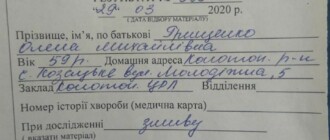 29 03 2020 р.
( ДАТА ВІДБОРУ МАТЕРІАЛУ)
Прізвище, ім'я, по батькові Грищенко
Олена Михайлівна
Вік 59 р. Домашня адреса р-н
с. Козацьке вул. Молодіжна, 5
Заклад ЦРЛ Відділення
Номер історії хвороби (медична карта)
При дослідженні змиву
( вказати матеріал)